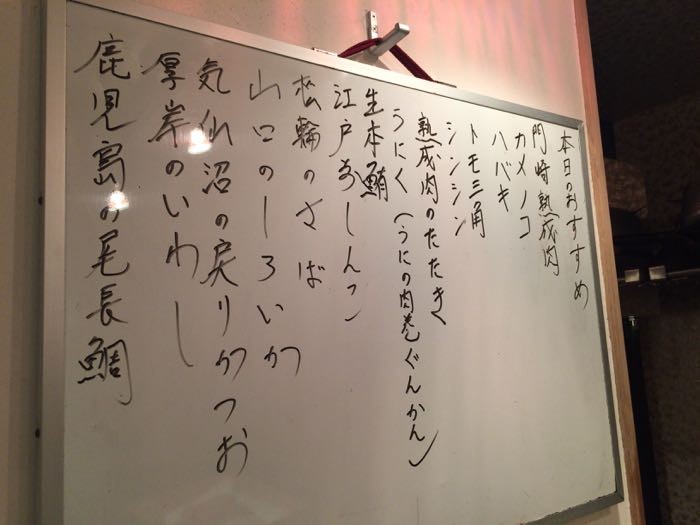 本日のおすすめ
門崎熟成肉
カメノコ
ハバキ
トモ三角
シンシン
熟成肉のたたき
うにく（うにの肉巻ぐんかん）
生本鮪
江戸前しんこ
松輪のさば
山口のしろいか
気仙沼の戻りかつお
厚岸のいわし
鹿児島の尾長鯛